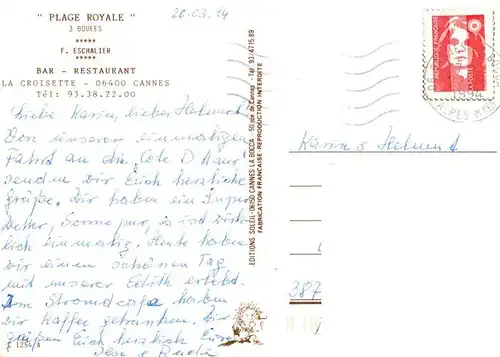 " PLAGE ROYALE "
3 BOUEES
*****
F. ESCHALIER
*****
BAR - RESTAURANT
LA CROISETTE - 06400 CANNES
Tél: 93.38.22.00
20.03.94
Liebe Karin, lieber Helmut
Von unserer einmaligen
Fahrt an die Cote D Azur
senden wir Euch herzliche
Grüße. Wir haben ein Super
Wetter, Sonne pur, es ist wirk-
lich einmalig. Heute haben
wir einen schönen Tag
mit unserer Edith erlebt.
Am Strandcafe haben
wir Kaffee getrunken. Wir
grüßen Euch herzlich Eure
Ilse & Rudi
E 1254/A
EDITIONS SOLEIL-06150 CANNES LA BOCCA - 50, rue de Cannes - Tel: 93.47.15.89
FABRICATION FRANCAISE REPRODUCTION INTERDITE
REPUBLIQUE FRANCAISE
LA POSTE
Karin & Helmut
387